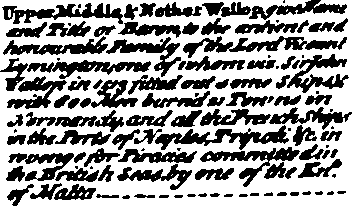 Upper, Middle, & Nether Wallop, give Name
and Title of Baron, to the antient and
honourable Family of the Lord Vicount
Lymington, one of whom viz. Sir John
Wallop in 1513 fitted out some Ships &
with 800 Men burn'd 21 Towns in
Normandy, and all the French Ships
in the Ports of Naples, Tripoli &c. in
revenge for Piracies committed in
the British Seas, by one of the Knts.
of Malta